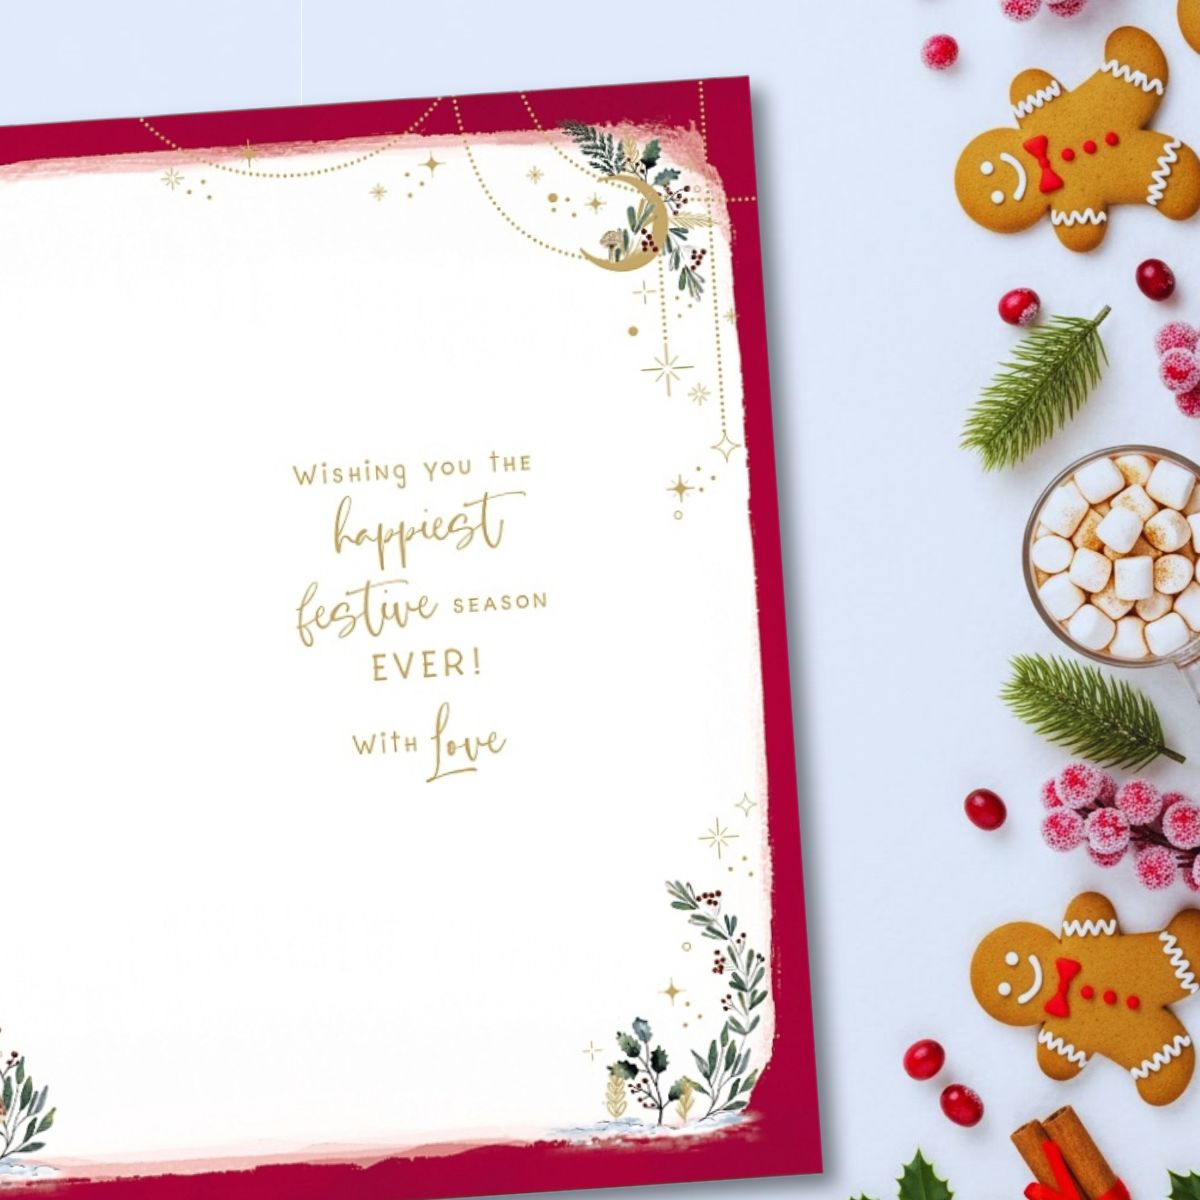 Wishing you the
happiest
festive season
EVER!
With Love